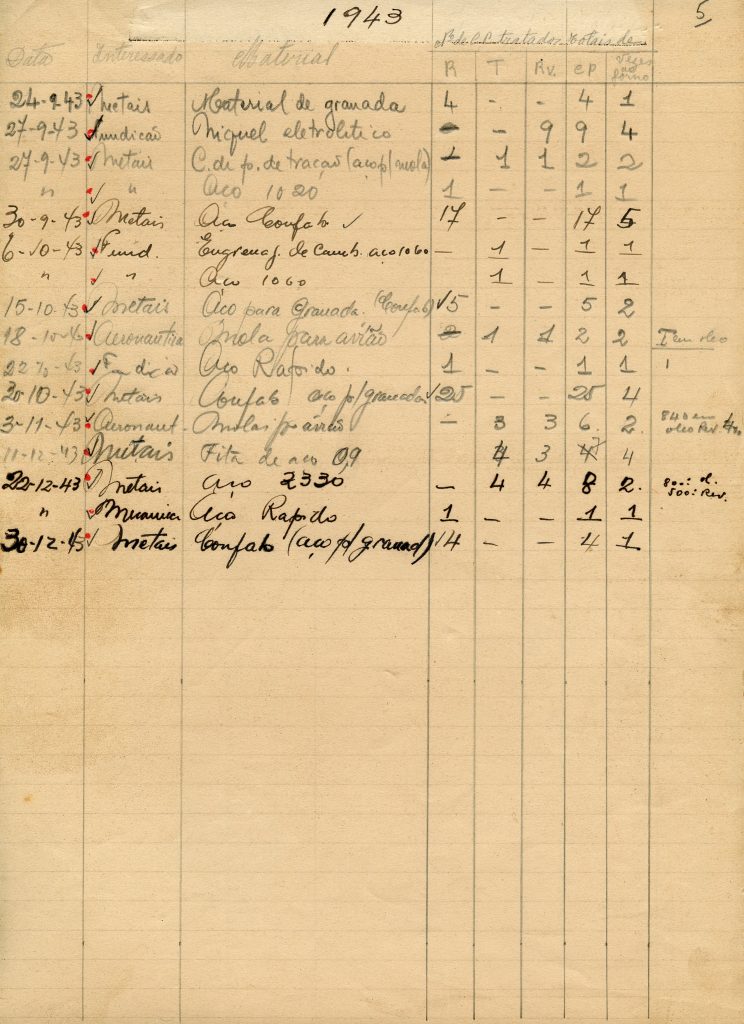 1943 5
Data Interessado Material Nº de C.P. tratados Totais de
R T Rv. CP Vezes ao forno
24-9-43 Metais Material de granada 4 - - 4 1
27-9-43 Fundicão Niquel eletrolitico - - 9 9 4
27-9-43 Metais C. de p. de tração (aço p/ mola) - 1 1 2 2
" " Aço 1020 1 - - 1 1
30-9-43 Metais Aço Confab 17 - - 17 5
6-10-43 Fund. Engrenag. de Camb. aço 1060 - 1 - 1 1
" " Aco 1060 1 - 1 1
15-10-43 Metais Aço para Granada. (Confab) 5 - - 5 2
18-10-43 Aeronautica Mola para avião 1 1 2 2 I em oleo
22-10-43 Fundição Aço Rapido. 1 - - 1 1
30-10-43 Metais Confab aço p/ granadas 25 - - 25 4
3-11-43 Aeronaut. Molas p/ avião - 3 3 6 2 840 em
oleo Rv.
11-12-43 Metais Fita de aço 0,9 4 3 7 4
22-12-43 Metais aço 2330 - 4 4 8 2 800: d.
500: Rev.
" Mecanica Aço Rapido 1 - - 1 1
30-12-43 Metais Confab (aço p/ granad) 14 - - 4 1